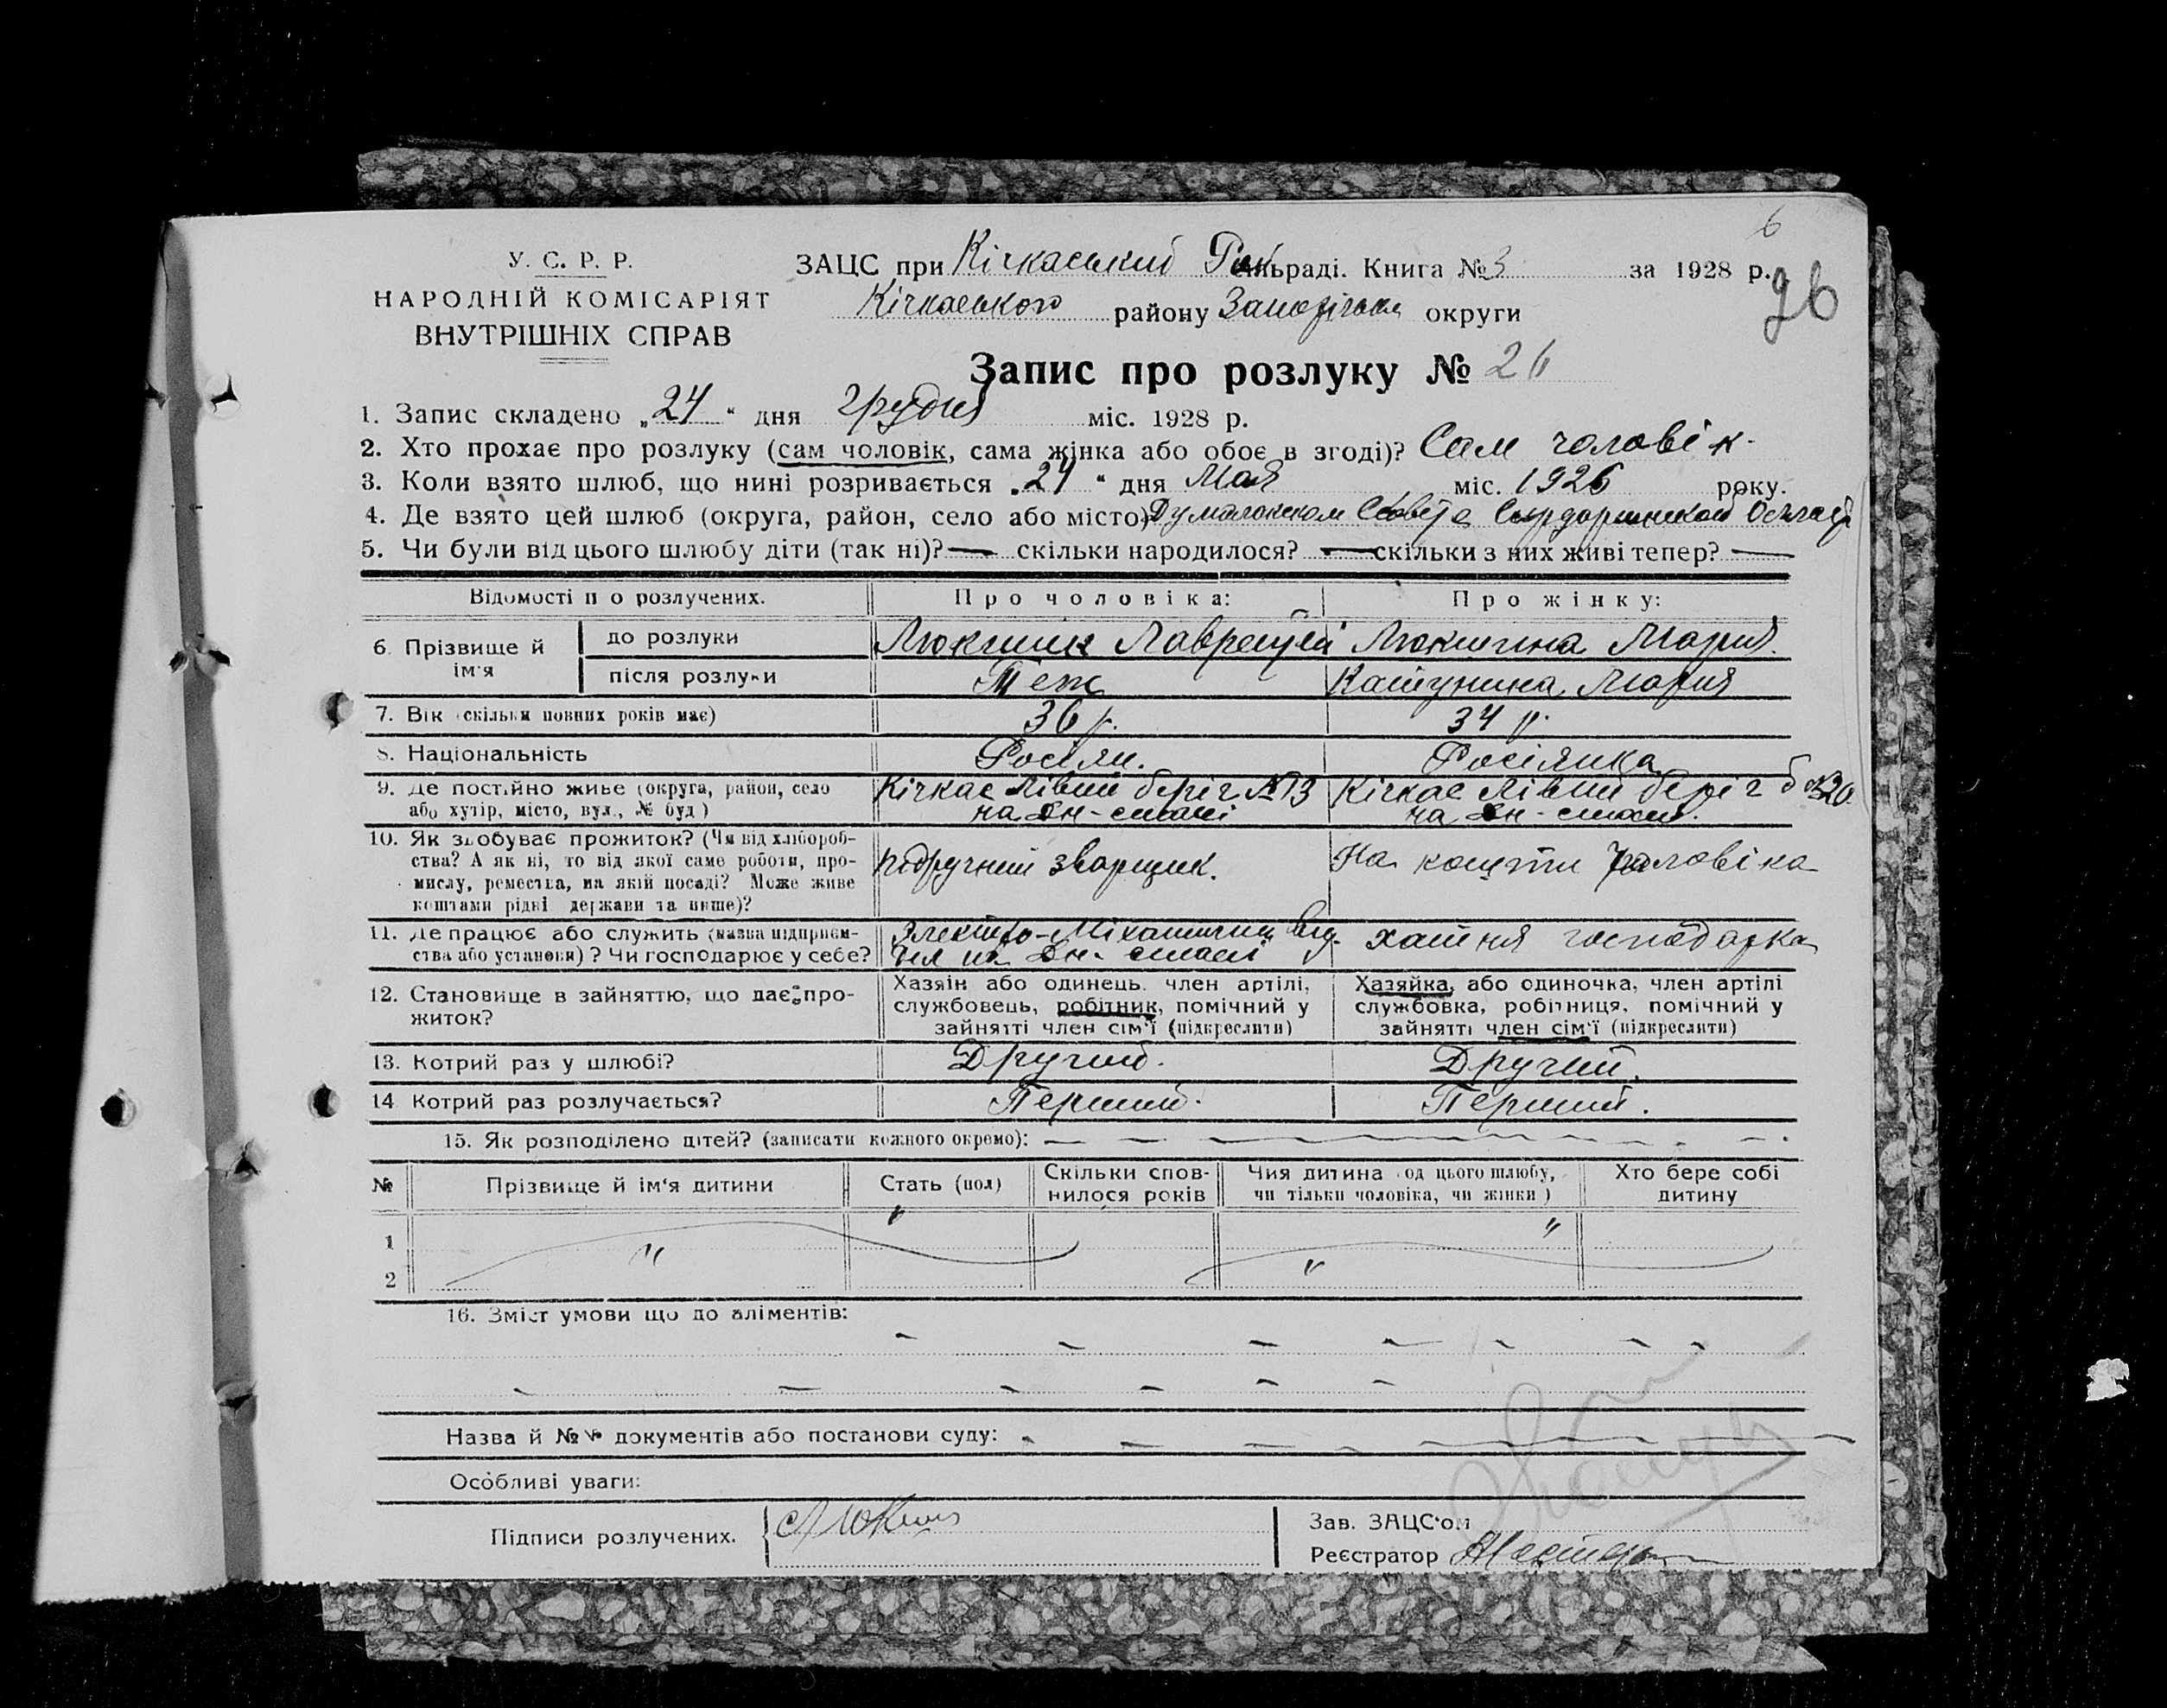 6
У. С. Р. Р.
НАРОДНІЙ КОМІСАРІЯТ
ВНУТРІШНІХ СПРАВ
ЗАЦС при Кічкаський сільраді. Книга № 3 за 1928 р.
26
Кічкаського району округи
Запис про розлуку № 26
1. Запис складено „24“ дня грудня міс. 1928 р.
2. Хто прохає про розлуку (сам чоловік, сама жінка або обоє в згоді)? Сам чоловік.
3. Коли взято шлюб, що нині розривається „24“ дня Мая міс. 1926 року.
4. Де взято цей шлюб (округа, район, село або місто)
5. Чи були від цього шлюбу діти (так ні)? — скільки народилося? — скільки з них живі тепер? —
Відомості п о розлучених. Про чоловіка: Про жінку:
6. Прізвище й ім'я до розлуки Люкшин Лаврентій Люкшина Мария
після розлуки Теж Кашунина Мария
7. Вік (скільки повних років має) 36 р. 34 р.
8. Національність Росіян. Росіянка
9. Де постійно живе (округа, район, село Кічкас Лівий беріг №13 Кічкас Лівий беріг б №20
або хутір, місто, вул., № буд) на Дн-стані на Дн-стані.
10. Як здобуває прожиток? (Чи від хлібороб-
ства? А як ні, то від якої саме роботи, про- підручний зварщик. На кошти чоловіка
мислу, ремества, на якій посаді? Може живе
коштами рідні держави та инше)?
11. Де працює або служить (назва підприєм- Электро-Міханичний Від- хатня господарка
ства або установи)? Чи господарює у себе? діл на Дн. стані
12. Становище в зайняттю, що дає про-
житок?
Хазяін або одинець, член артілі,
службовець, робітник, помічний у
зайнятті член сім'ї (підкреслити)
Хазяйка, або одиночка, член артілі
службовка, робітниця, помічний у
зайнятті член сім'ї (підкреслити)
13. Котрий раз у шлюбі? Другий. Другий.
14. Котрий раз розлучається? Перший. Перший.
15. Як розподілено дітей? (записати кожного окремо): — — — — — —
№ Прізвище й ім'я дитини Стать (пол) Скільки спов-
нилося років Чия дитина (од цього шлюбу,
чи тільки чоловіка, чи жінки) Хто бере собі
дитину
1 " "
2 " "
16. Зміст умови що до аліментів:
Назва й №№ документів або постанови суду:
Особливі уваги:
Підписи розлучених. Люкшин
Зав. ЗАЦС'ом
Реєстратор